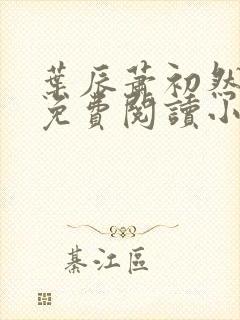 葉辰蕭初然
免費閱讀小
綦江區